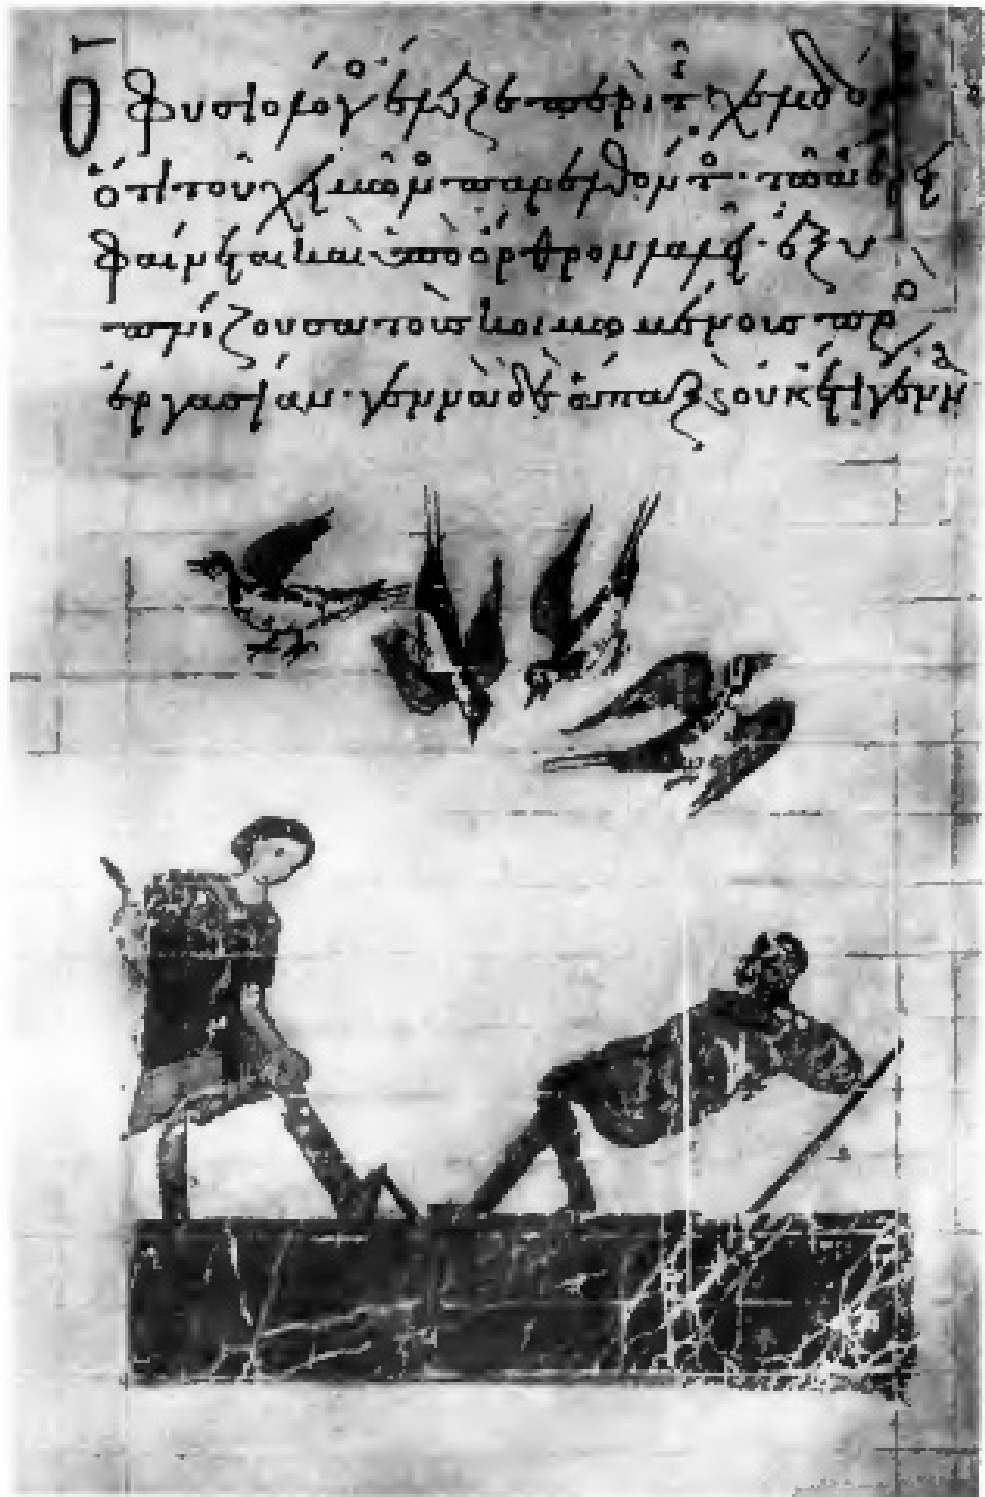 Ὁ φυσιολόγος ἔλεξε περὶ τῆς χελιδό
ὅτι τοῦ χειμῶνος παρελθόντος· τῶ
φαίνεται καὶ ὑπὸ ὄρθρον λαλεῖ· ἐξυ
πνίζουσα τοὺς κοιμωμένους πρὸς
ἐργασίαν· γεννᾶ δὲ ἅπαξ οὐκέτι γεννᾶ